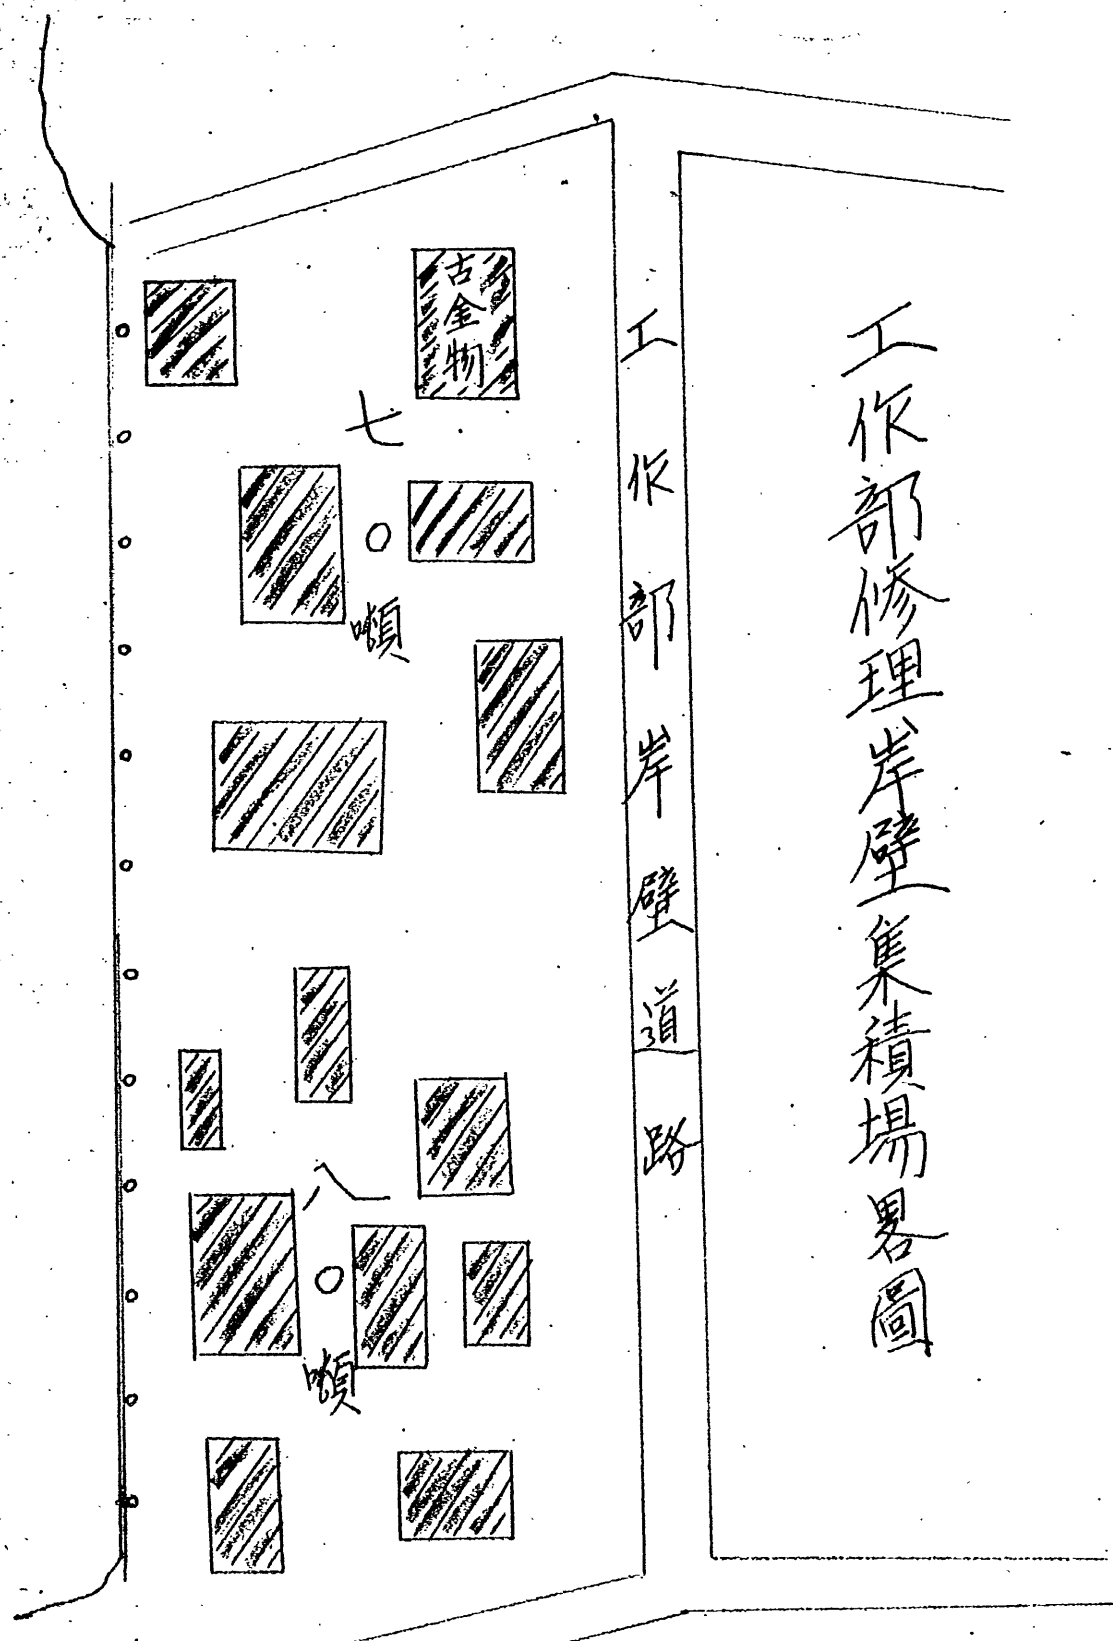 工作部修理岸壁集積場畧圖
工作部岸壁道路
古金物
七〇噸
八〇噸